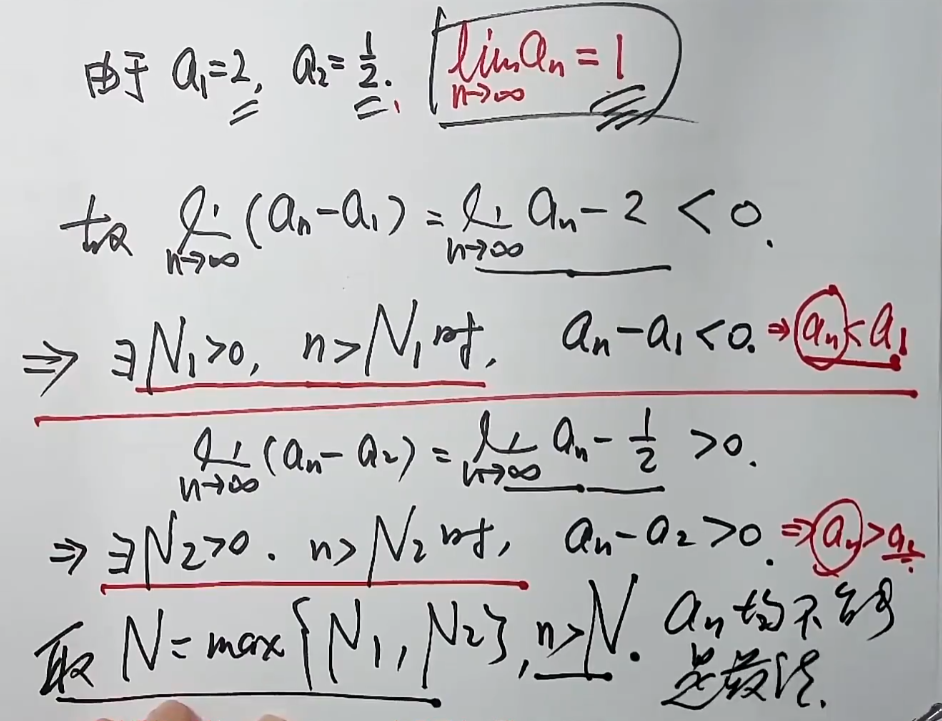 由于 a₁=2, a₂=1/2. lim n→∞ aₙ = 1
故 lim n→∞ (aₙ-a₁) = lim n→∞ aₙ-2 < 0.
⇒ ∃N₁>0, n>N₁时, aₙ-a₁<0. ⇒ aₙ<a₁
lim n→∞ (aₙ-a₂) = lim n→∞ aₙ-1/2 >0.
⇒ ∃N₂>0. n>N₂时, aₙ-a₂>0. ⇒ aₙ>a₂
取 N=max{N₁,N₂}, n>N. aₙ均不能
是最值.